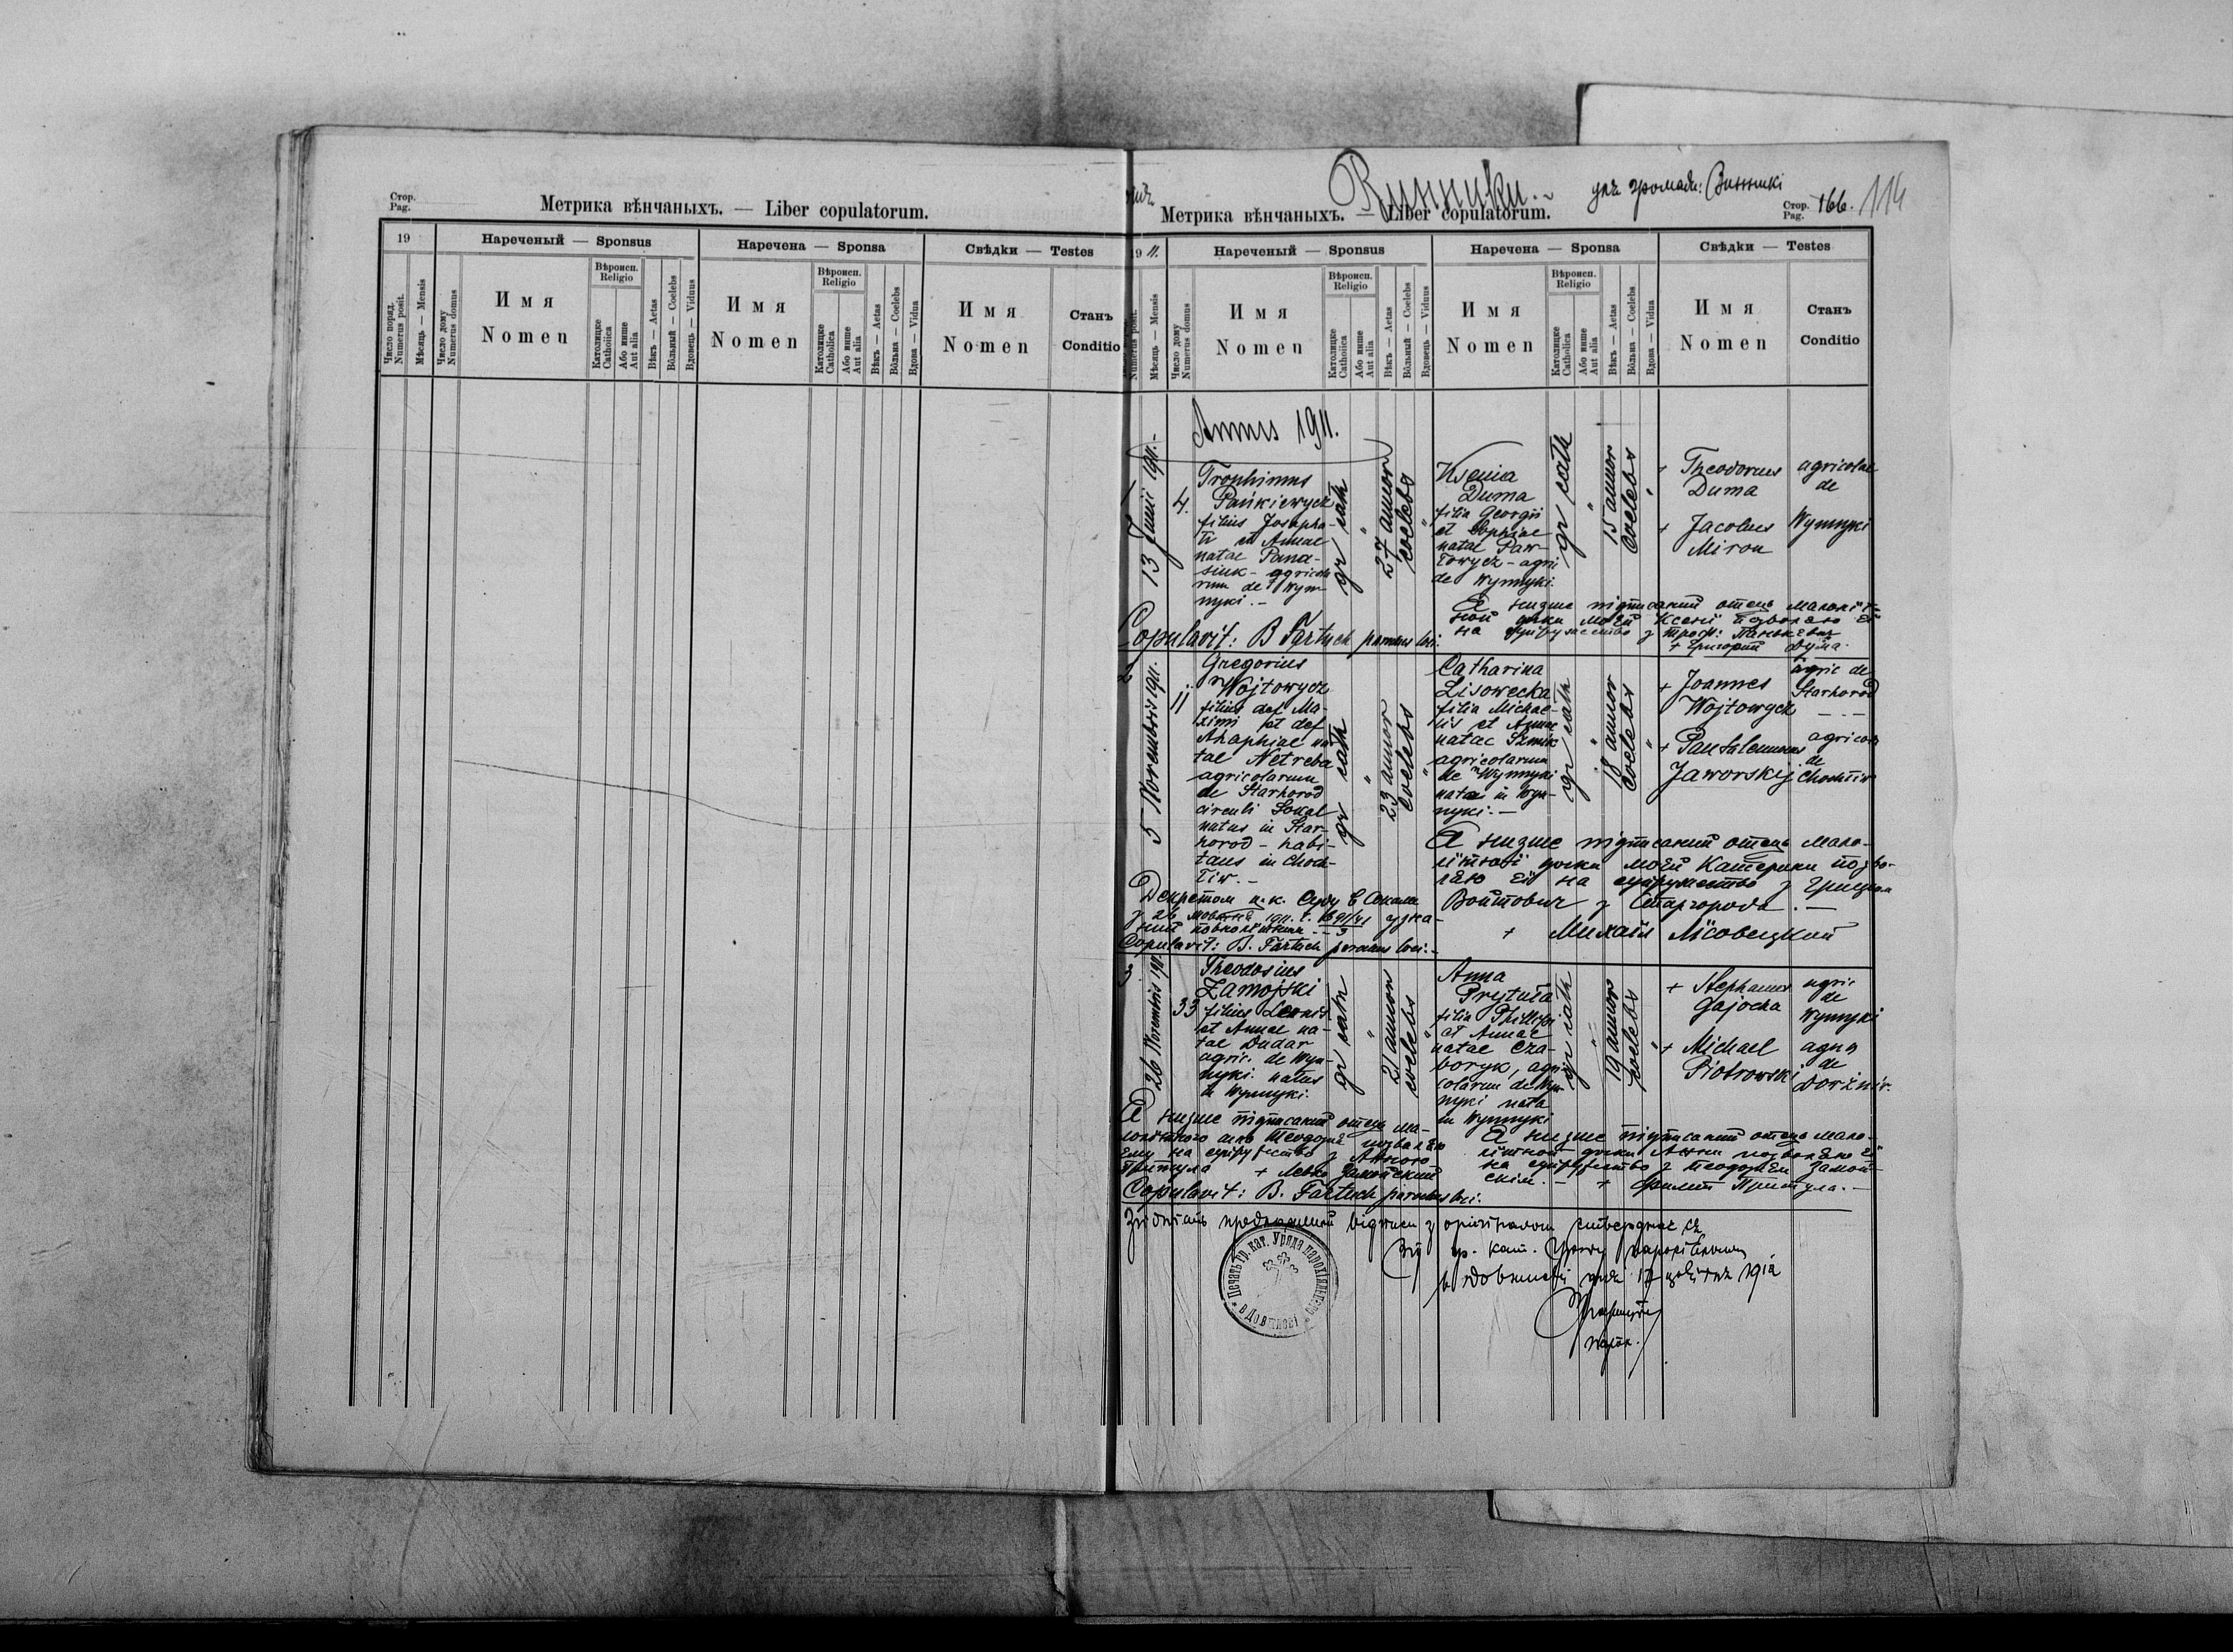 Стор.
Pag.
Метрика вѣнчаныхъ. — Liber copulatorum.
19
Нареченый — Sponsus
Наречена — Sponsa
Свѣдки — Testes
Число поряд.
Numerus posit.
Мѣсяць — Mensis
Число дому
Numerus domus
Имя
Nomen
Вѣроисп.
Religio
Католицке
Catholica
Або инше
Aut alia
Вѣкъ — Aetas
Вôльный — Coelebs
Вдовець — Viduus
Имя
Nomen
Вѣроисп.
Religio
Католицке
Catholica
Або инше
Aut alia
Вѣкъ — Aetas
Вôльна — Coelebs
Вдова — Vidua
Имя
Nomen
Станъ
Conditio
Винники.
для громади: Винники
Метрика вѣнчаныхъ. — Liber copulatorum.
Стор.
Pag. 166.
114
19 11.
Нареченый — Sponsus
Наречена — Sponsa
Свѣдки — Testes
Numerus posit.
Мѣсяць — Mensis
Число дому
Numerus domus
Имя
Nomen
Вѣроисп.
Religio
Католицке
Catholica
Або инше
Aut alia
Вѣкъ — Aetas
Вôльный — Coelebs
Вдовець — Viduus
Имя
Nomen
Вѣроисп.
Religio
Католицке
Catholica
Або инше
Aut alia
Вѣкъ — Aetas
Вôльна — Coelebs
Вдова — Vidua
Имя
Nomen
Станъ
Conditio
Annus 1911.
1
13 Junii 1911.-
4.
Trophimus
Pańkiewycz
filius Josapha-
ti et Annae
natae Pana-
siuk - agricola-
rum de Wyn-
nyki.-
gr cath
27 annor
coelebs
Ksenia
Duma
filia Georgii
et Sophiae
natae Paw-
łowycz - agri
de Wynnyki.
gr cath
15 annor
coelebs
+ Theodorus
Duma
agricolae
de
+ Jacobus
Miron
Wynnyki
Я низше підписаний отець малоліт-
ної доньки моєй Ксенії позваляю єй
на супружество з Троф: Панькевич
+ Григорий Дума.
Copulavit: B Fartuch parochus loci.
2
5 Novembris 1911.
11
Gregorius
Wojtowycz
filius def Ma-
ximi et def
Ahaphiae na
tae Netreba
agricolarum
de Starhorod
circuli Sokal
natus in Star-
horod - habi-
tans in Choch-
łiw.-
gr cath
23 annor
coelebs
Catharina
Lisowecka
filia Michae-
lis et Annae
natae
agricolarum
de Wynnyki
nata in Wyn-
nyki.-
gr cath
18 annor
coelebs
+ Joannes
Wojtowycz
agric de
Starhorod
+ Pantalemonus
Jaworskij
agricola
de
Chochłiw
Я низше підписаний отець мало-
літної доньки моєй Катерини позво-
ляю єй на супружество з Грицком
Войтович з Старгорода.-
+ Михаіл Лісовецкий
Декретом ц.к. Суду в Сокали
з 26 1911. ч. узна-
ний повнолітним.
Copulavit: B. Fartuch parochus loci.-
3
26 Novembris 1911.
33
Theodosius
Zamojski
filius Leonis
et Annae na-
tae Dudar
agric. de Wyn-
nyki. natus
in Wynnyki.
gr cath
21 annor
coelebs
Anna
Prytuła
filia Philippi
et Annae
natae Cza-
boryk, agri
colarum de Wyn
nyki nata
in Wynnyki
gr cath
19 annor
coelebs
+ Stephanus
Gajocha
agric
de
Wynnyki
+ Michael
Piotrowski
agric
de
Я низше підписаний отець ма-
лолітного сина Теодозія позваляю
єму на супружество з Анною
Притула + Левко Замойский
Я низше підписаний отець мало-
літной доньки Анни позваляю єй
на супружество з Теодозієм Замой-
скім.- + Филип Притула.-
Copulavit: B. Fartuch parochus loci.
Згідність предложеної відписи з оригіналом стверджає ся
Від гр. кат. Уряду парохіяльного
дня 17 цвітня 1912
парох.
Печать гр. кат. Уряда парохіяльного
в Довжневі